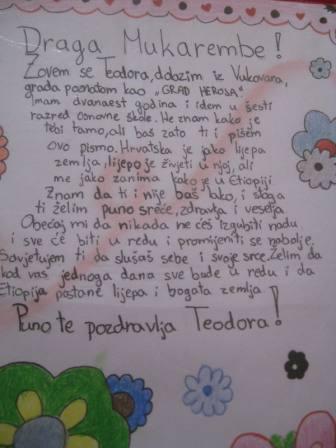 Draga Mukarembe!
Zovem se Teodora, dolazim iz Vukovara,
grada poznatom kao „GRAD HEROJA"
Imam dvanaest godina i idem u šesti
razred osnovne škole. Ne znam kako je
tebi tamo, ali baš zato ti i pišem
ovo pismo. Hrvatska je jako lijepa
zemlja, lijepo je živjeti u njoj, ali
me jako zanima kako je u Etiopiji
Znam da ti i nije baš lako, i stoga
ti želim puno sreće, zdravlja i veselja
Obećaj mi da nikada ne ćeš izgubiti nadu
i sve će biti u redu i promijeniti se nabolje.
Savjetujem ti da slušaš sebe i svoje srce. Želim da
kod vas jednoga dana sve bude u redu i da
Etiopija postane lijepa i bogata zemlja
Puno te pozdravlja Teodora!